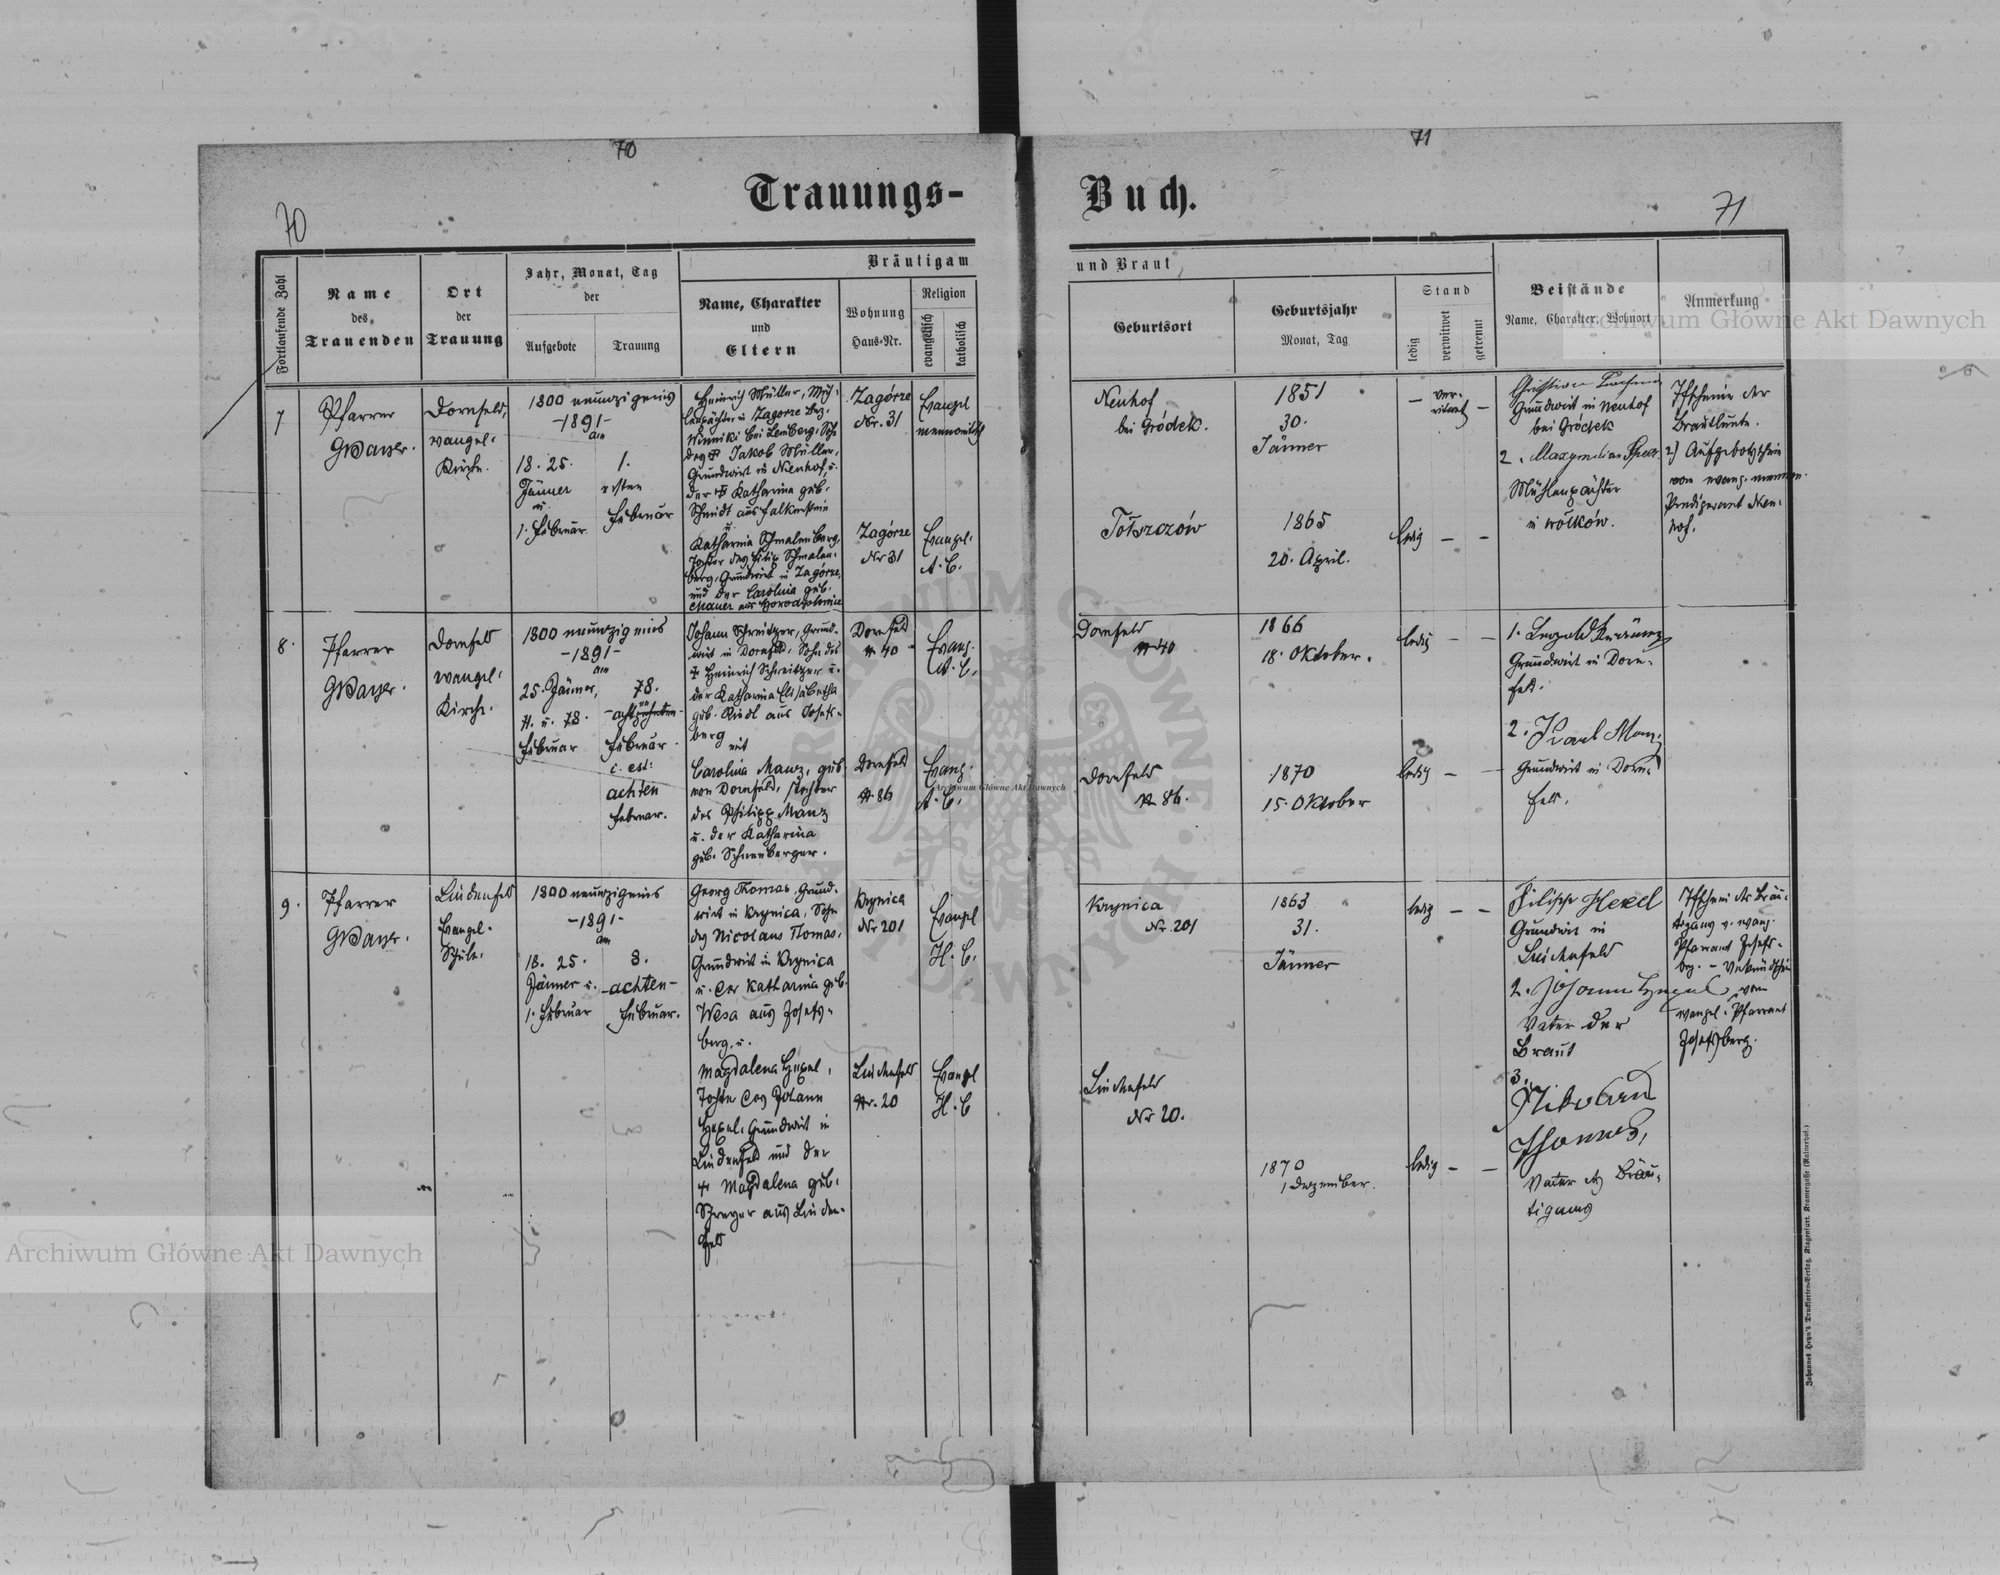 70
71
Trauungs-
Buch.
70
71
Fortlaufende Zahl
Name
des
Trauenden
Ort
der
Trauung
Jahr, Monat, Tag
der
Aufgebote
Trauung
Bräutigam
Name, Charakter
und
Eltern
Wohnung
Haus-Nr.
Religion
evangelisch
katholisch
und Braut
Geburtsort
Geburtsjahr
Monat, Tag
Stand
ledig
verwitwet
getrennt
Beistände
Name, Charakter, Wohnort
Anmerkung
7
Pfarrer
Dornfeld,
evangel.
Kirche.
1800 neunzigeins
-1891-
am
18. 25.
Jänner
u.
1. Februar
1.
ersten
Februar
Heinrich Müller,
in Zagorze Bez.
Winniki bei Lemberg, Sohn
des Jakob Müller,
Grundwirt in Neuhof u.
der Katharina geb.
Schmidt aus Falkenstein
u.
Katharina Schmalenberg,
Tochter des Filip Schmalen-
berg, Grundwirt in Zagórze,
und der Carolina geb.
Zagórze
Nr. 31
Evangel
mennonitisch
Zagórze
Nr 31
Evangel.
A. C.
Neuhof
bei Gródek.
1851
30.
Jänner
ver-
witwet
Tołszczów
1865
20. April.
ledig
Christian
Grundwirt in Neuhof
bei Gródek
2. Maxymilian
Mühlenpächter
in Wołków.
der
Brautleute.
2) Aufgebotschein
vom evang. mennon.
Predigeramt Neu-
hof.
8.
Pfarrer
Dornfeld
evangel.
Kirche.
1800 neunzig eins
-1891-
am
25. Jänner,
u.
Februar
Februar.
c. est:
achten
Februar.
Johann Schreitzer, Grund-
wirt in Dornfeld, Sohn des
Heinrich Schreitzer u.
der Katharina Elisabetha
geb. Riedl aus Josefs-
berg
mit
Carolina Manz, geb
von Dornfeld, Tochter
des Philipp Manz
u. der Katharina
geb. Schneeberger.
Dornfeld
N 40
Evang.
A. C.
Dornfeld
N 86
Evang.
A. C.
Dornfeld
N 40
1866
18. Oktober.
ledig
Dornfeld
N 86.
1870
15. Oktober
ledig
1. Leopold
Grundwirt in Dorn-
feld.
2. Karl Manz
Grundwirt in Dorn-
feld.
9.
Pfarrer
Lindenfeld
Evangel.
Schule.
1800 neunzigeins
-1891-
am
18. 25.
Jänner u.
1. Februar
8.
-achten-
Februar.
Georg Thomas, Grund-
wirt in Krynica, Sohn
des Nicolaus Thomas,
Grundwirt in Krynica
u. der Katharina geb.
Wesa aus Josefs-
berg, u.
Magdalena Hexel,
Tochter des Johann
Hexel, Grundwirt in
Lindenfeld und der
Magdalena geb.
aus Linden-
feld
Krynica
Nr 201
Evangel
H. C.
Lindenfeld
Nr. 20
Evangel
H. C
Krynica
Nr. 201
1863
31.
Jänner
ledig
Lindenfeld
Nr 20.
1870
1 Dezember.
ledig
Filipp Hexel
Grundwirt in
Lindenfeld
2. Johann Hexel
Vater der
Braut
3.
Nikolaus
Thomas,
Vater des Bräu-
tigams
des Bräu-
tigams v. evang.
Pfarramt Josefs-
brg. -
vom
evangel. Pfarramt
Josefsberg.
Johannes Heyn's Drucksorten-Verlag, Klagenfurt, Kramergasse (Rainerhof.)
Archiwum Główne Akt Dawnych
Archiwum Główne Akt Dawnych
Archiwum Główne Akt Dawnych
ARCHIWUM GŁÓWNE AKT DAWNYCH